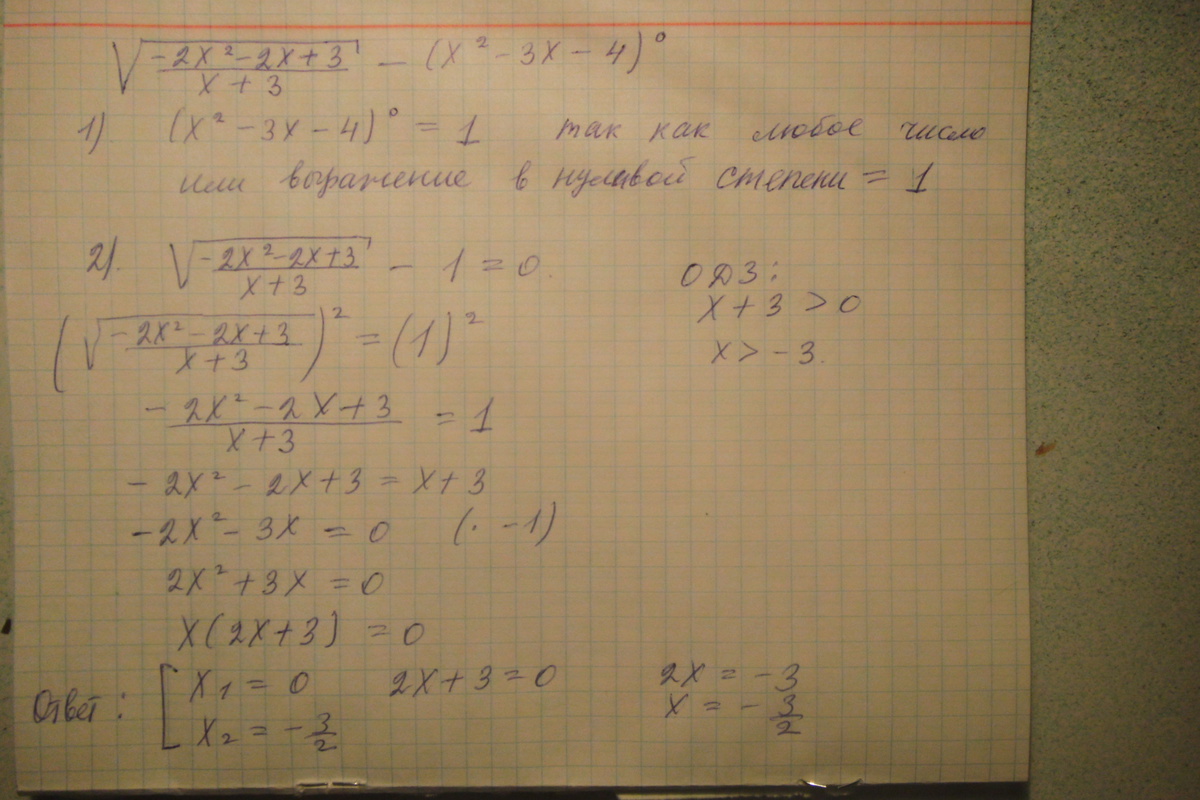 √((-2x²-2x+3)/(x+3)) - (x²-3x-4)⁰
1) (x²-3x-4)⁰ = 1 так как любое число
или выражение в нулевой степени = 1
2). √((-2x²-2x+3)/(x+3)) - 1 = 0.
ОДЗ:
x+3 > 0
x > -3.
(√((-2x²-2x+3)/(x+3)))² = (1)²
(-2x²-2x+3)/(x+3) = 1
-2x²-2x+3 = x+3
-2x²-3x = 0 (· -1)
2x²+3x = 0
x(2x+3) = 0
Ответ: [ x₁ = 0 2x+3=0 2x = -3
x₂ = -3/2 x = -3/2